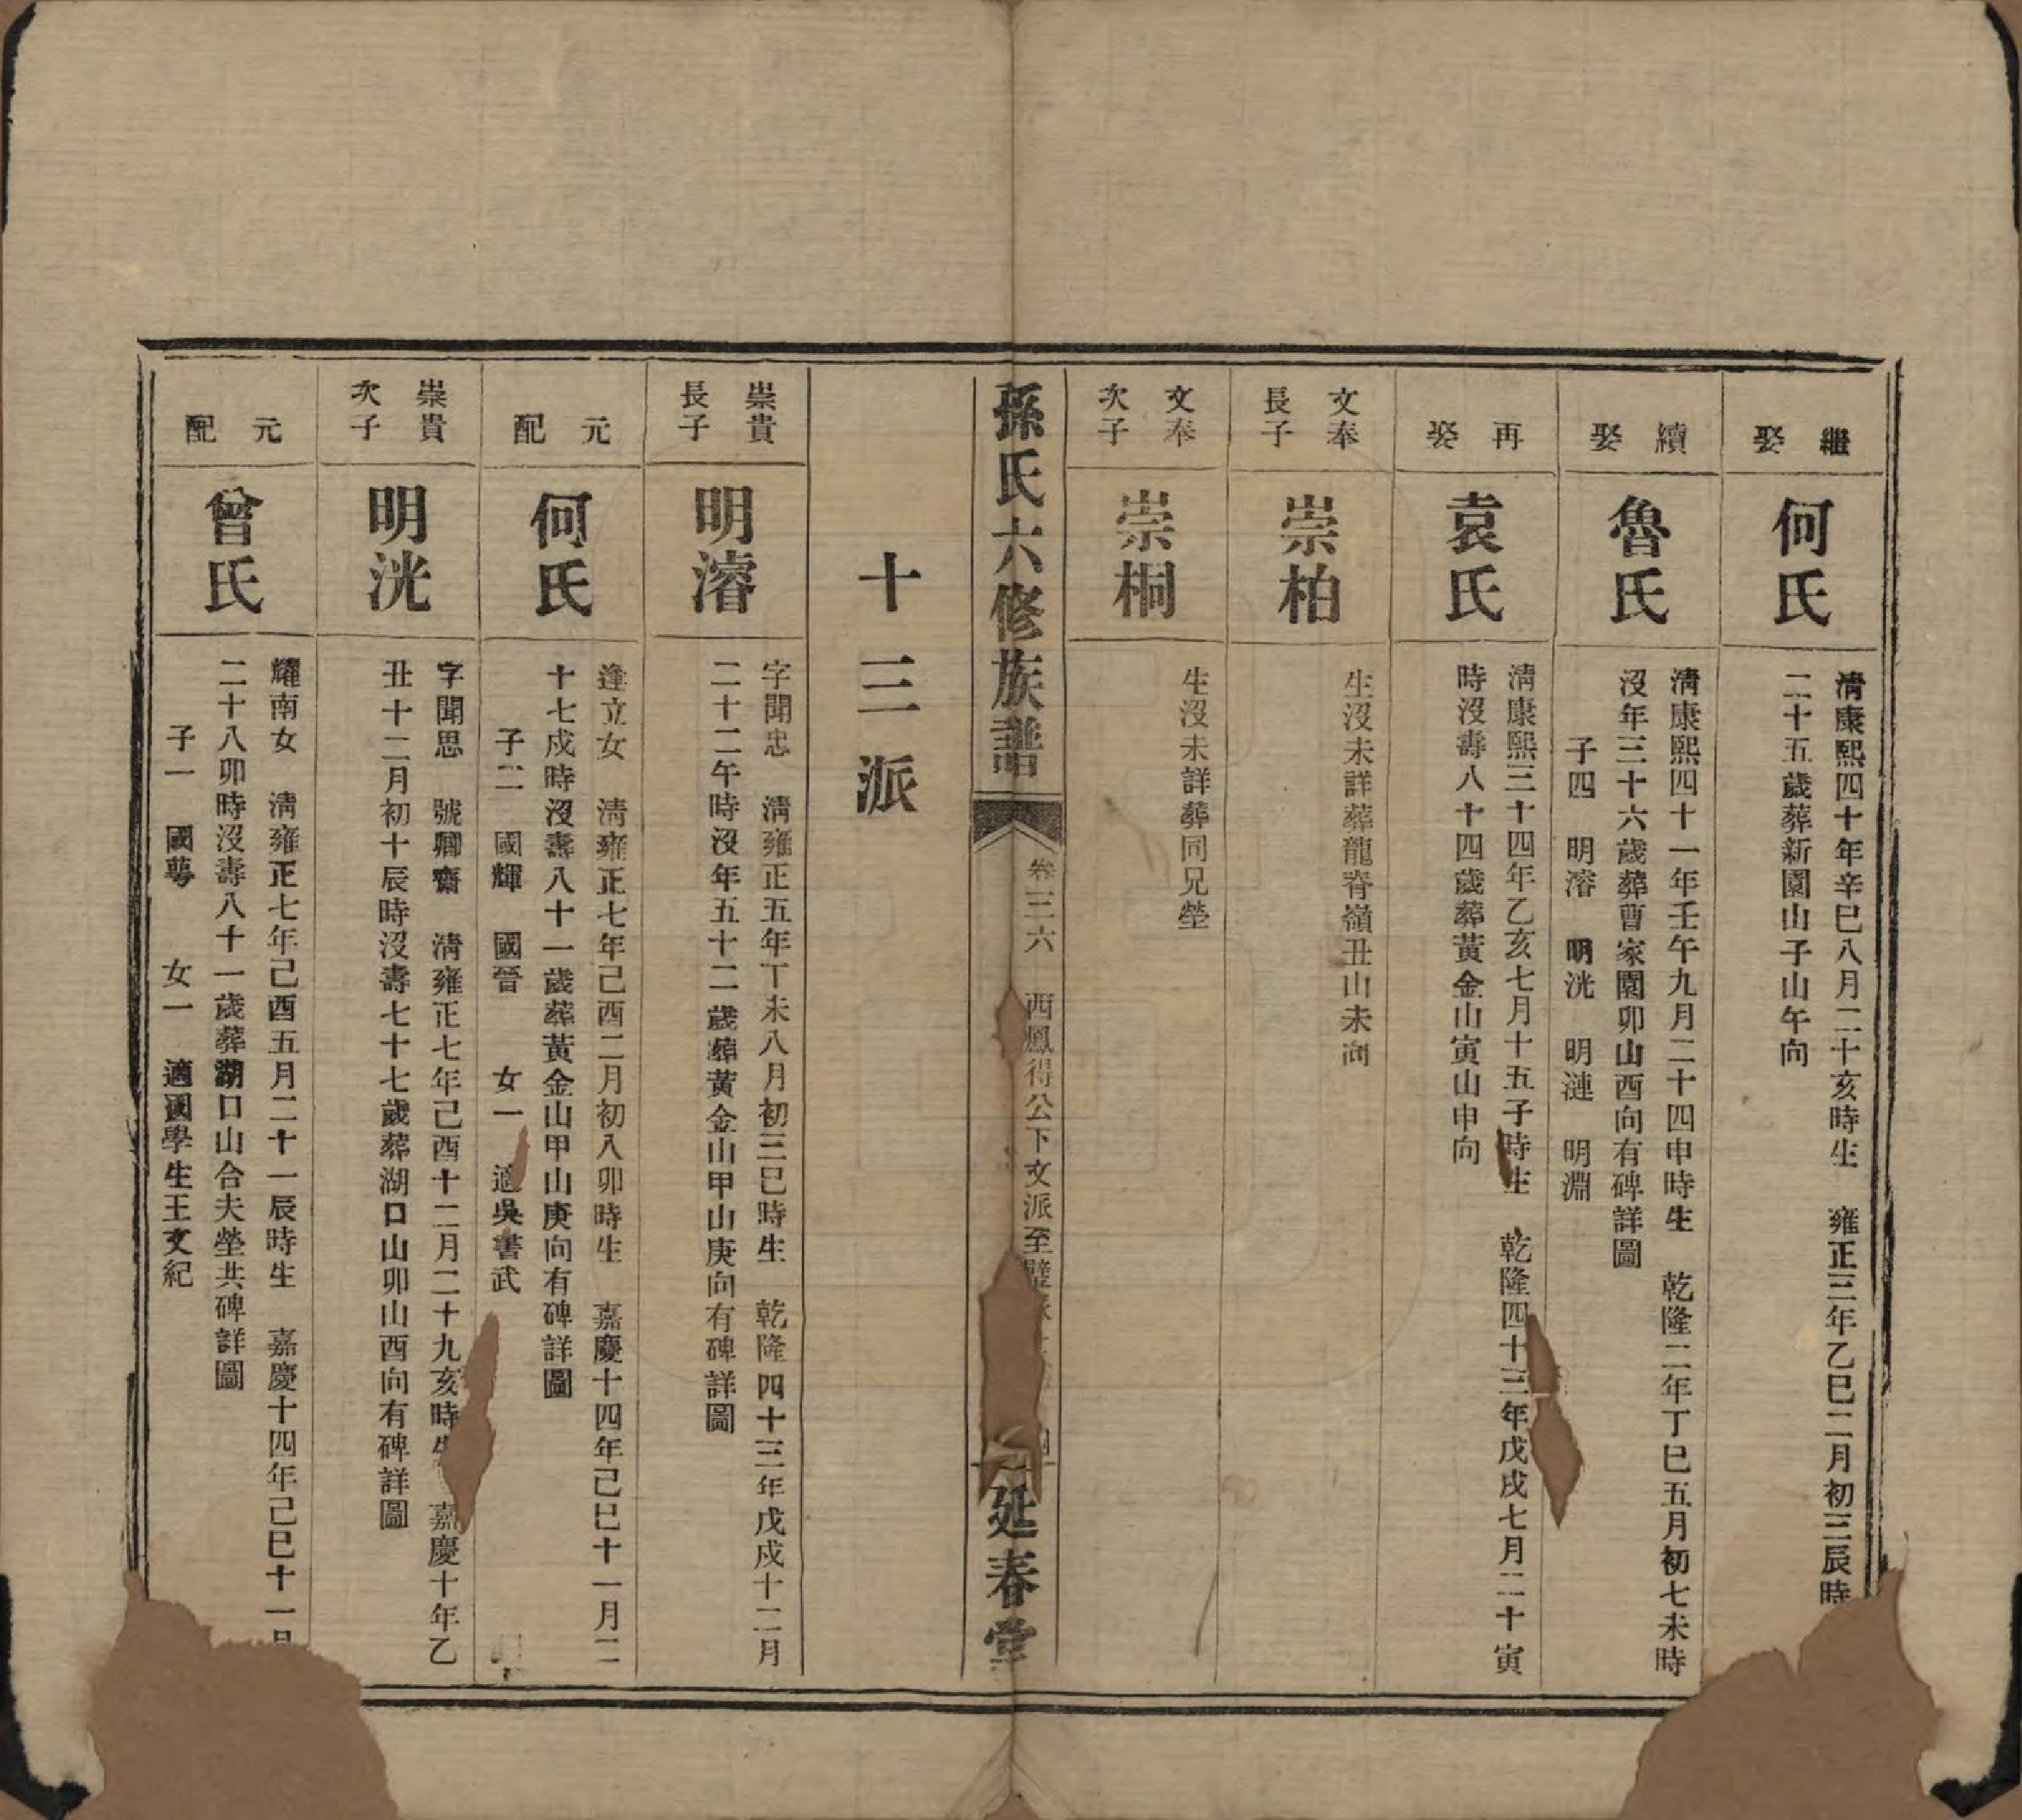 繼娶
何氏
清康熙四十年辛巳八月二十亥時生　雍正三年乙巳二月初三辰時
二十五歲葬新園山子山午向
續娶
魯氏
清康熙四十一年壬午九月二十四申時生　乾隆二年丁巳五月初七未時
沒年三十六歲葬曹家園卯山酉向有碑詳圖
子四　明溶　明洸　明漣　明淵
再娶
袁氏
清康熙三十四年乙亥七月十五子時生　乾隆四十三年戊戌七月二十寅
時沒壽八十四歲葬黃金山寅山申向
文奉長子
崇柏
生沒未詳葬龍脊嶺丑山未向
文奉次子
崇桐
生沒未詳葬同兄塋
孫氏六修族譜
卷三六　西鳳得公下文派至
延春堂
十三派
崇貴長子
明濬
字聞忠　清雍正五年丁未八月初三巳時生　乾隆四十三年戊戌十二月
二十二午時沒年五十二歲葬黃金山甲山庚向有碑詳圖
元配
何氏
逢立女　清雍正七年己酉二月初八卯時生　嘉慶十四年己巳十一月二
十七戌時沒壽八十一歲葬黃金山甲山庚向有碑詳圖
子二　國輝　國晉　女一　適吳書武
崇貴次子
明洸
字聞思　號卿齋　清雍正七年己酉十二月二十九亥時生　嘉慶十年乙
丑十二月初十辰時沒壽七十七歲葬湖口山卯山酉向有碑詳圖
元配
曾氏
耀南女　清雍正七年己酉五月二十一辰時生　嘉慶十四年己巳十一月
二十八卯時沒壽八十一歲葬湖口山合夫塋共碑詳圖
子一　國蕚　女一　適國學生王文紀